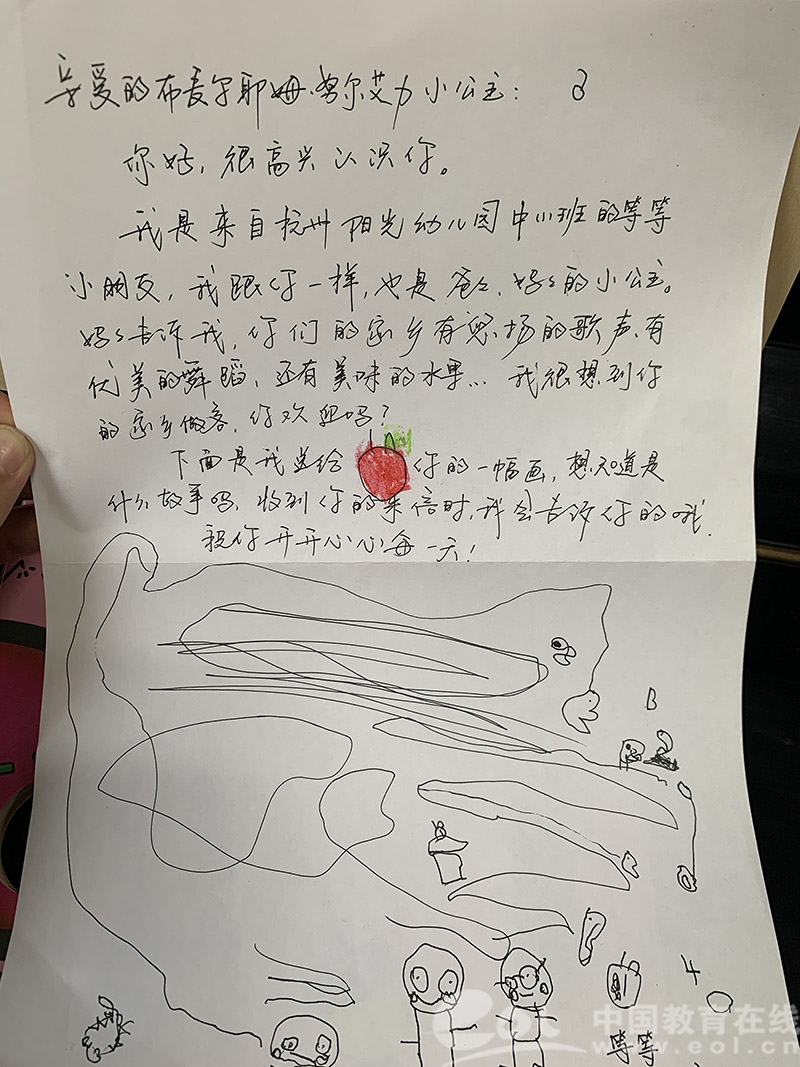 亲爱的布麦尔耶姆·努尔艾力小公主:
你好,很高兴认识你。
我是来自杭州阳光幼儿园中川班的等等
小朋友,我跟你一样,也是爸爸、妈妈的小公主。
妈妈告诉我,你们的家乡有悠扬的歌声、有
优美的舞蹈、还有美味的水果… 我很想到你
的家乡做客,你欢迎吗?
下面是我送给你的一幅画,想知道是
什么故事吗,收到你的来信时,我会告诉你的哦.
祝你开开心心每一天!
B
4
等等
eol 中国教育在线
www.eol.cn